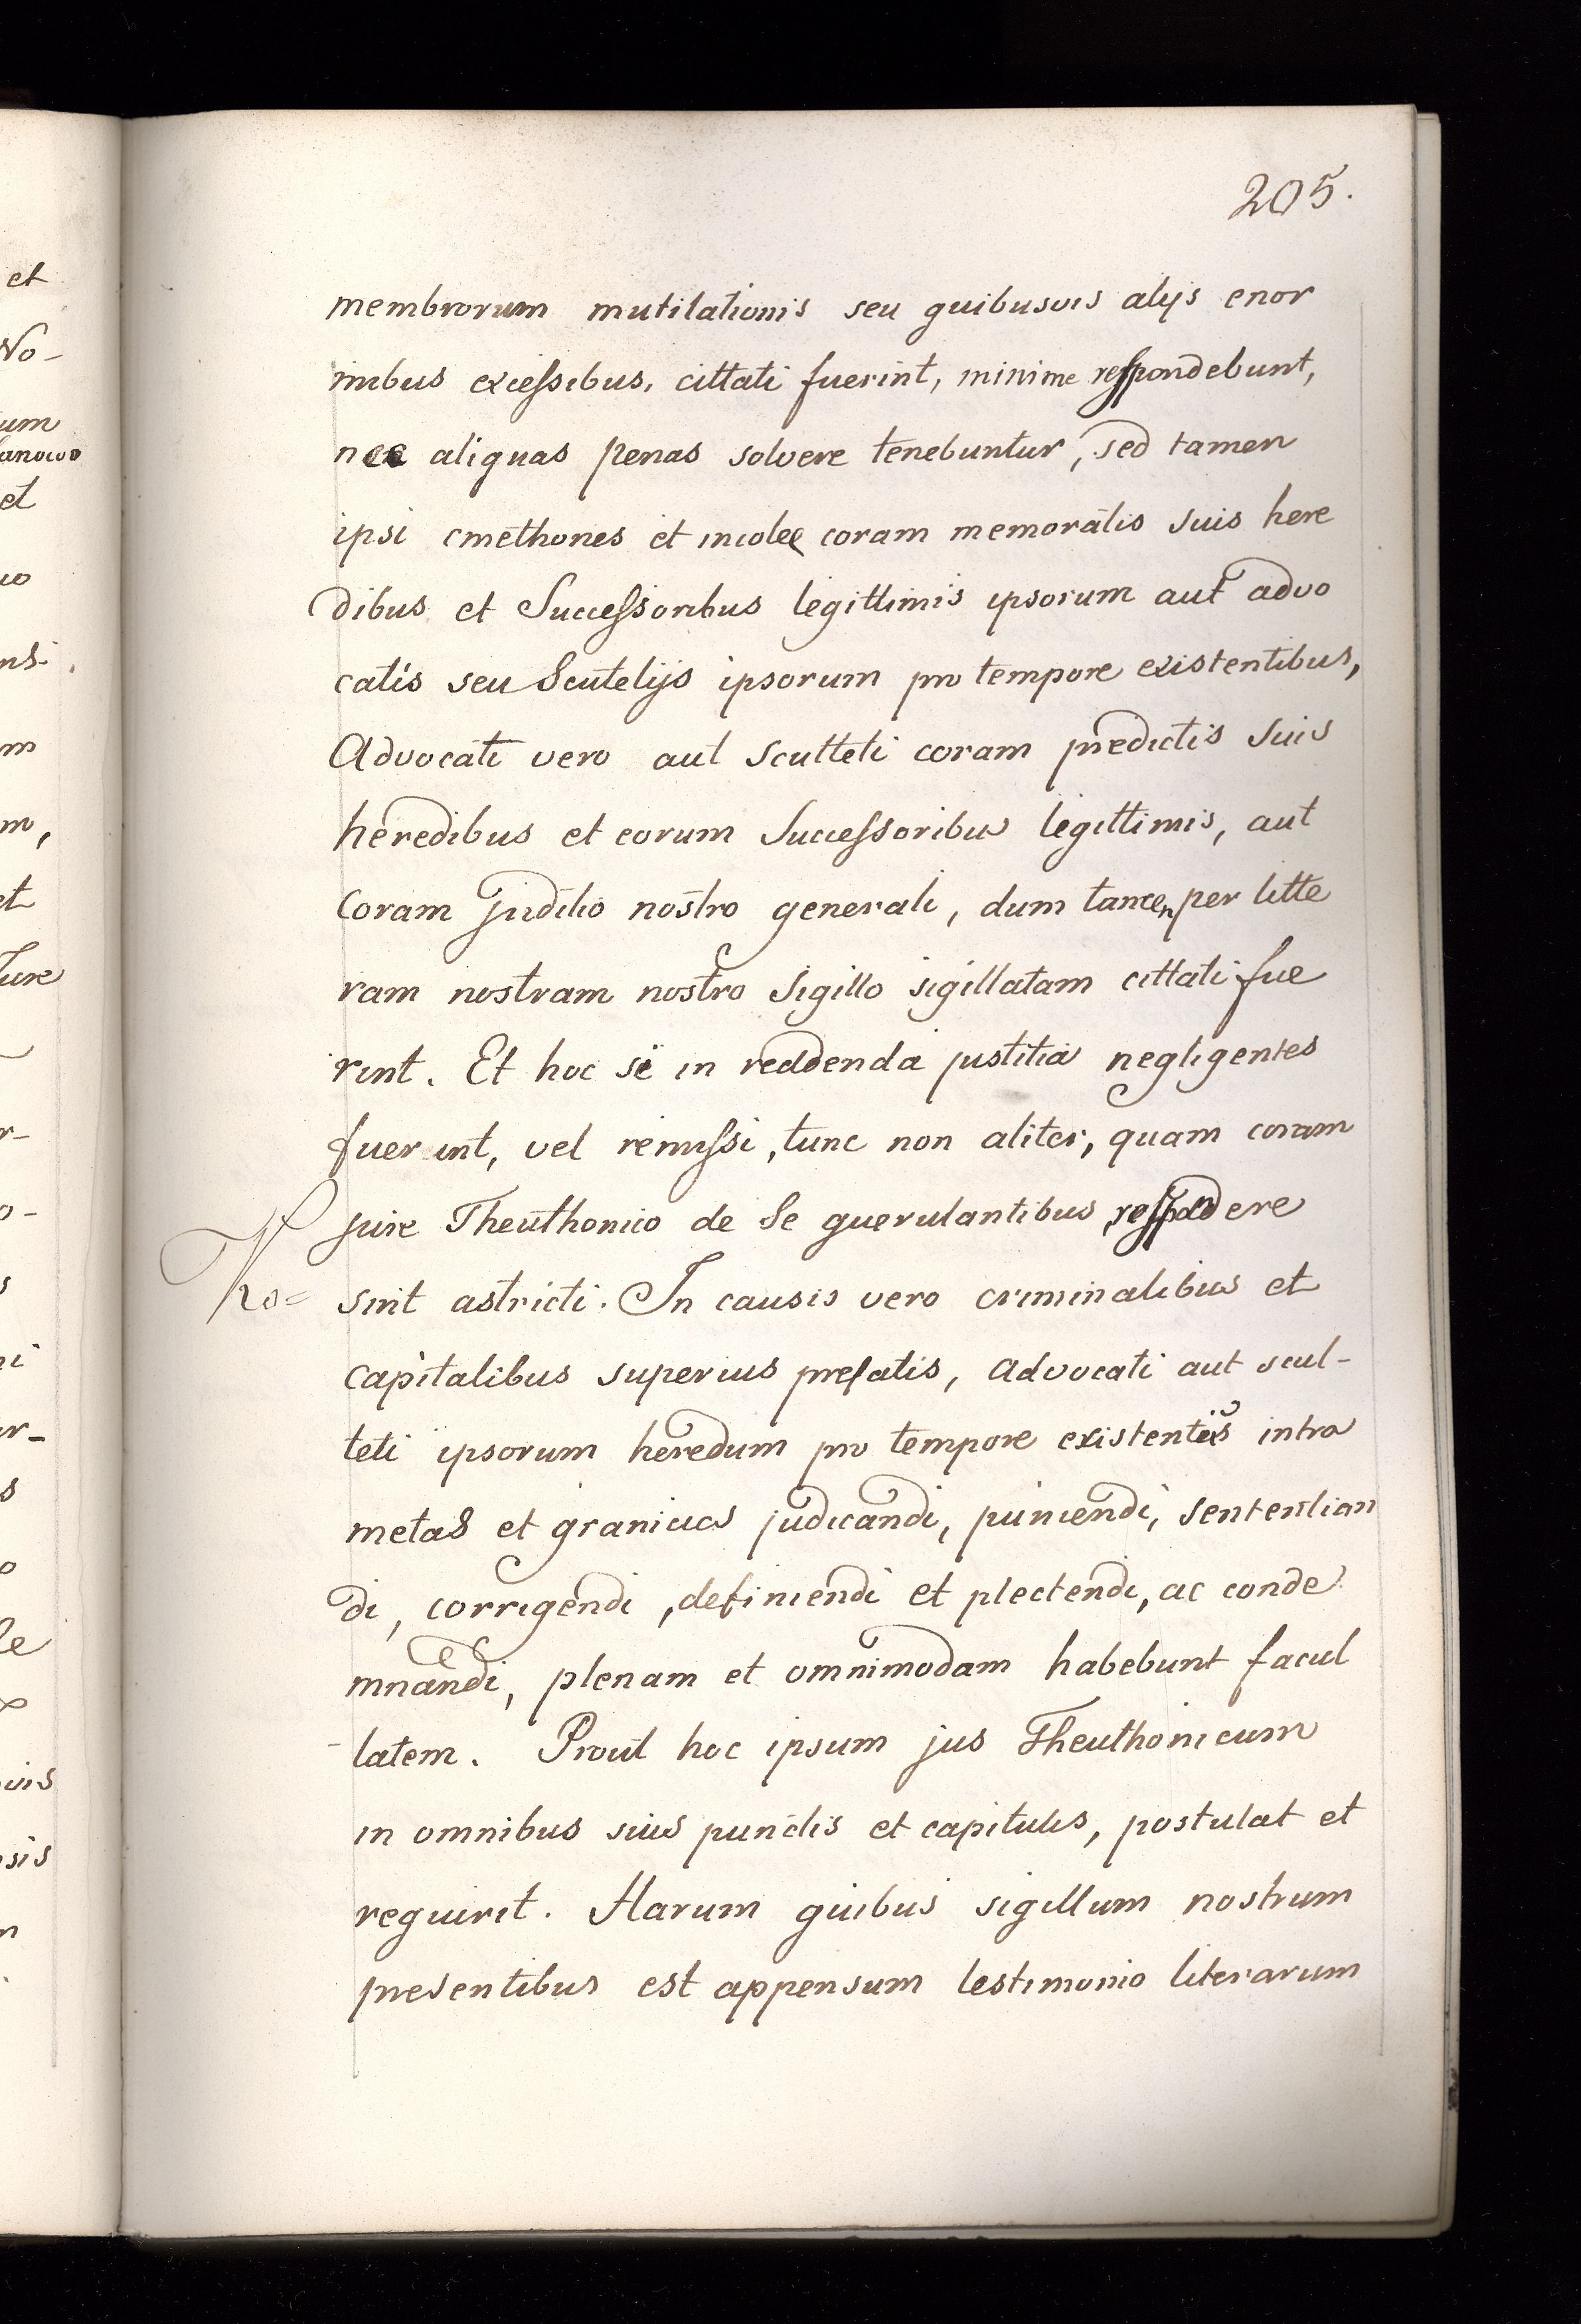 205.
membrorum mutilationis seu quibusvis alijs enor
mibus excessibus, cittati fuerint, minime respondebunt,
nec aliquas penas solvere tenebuntur, sed tamen
ipsi cmethones et incolee coram memoratis suis here
dibus et Successoribus legittimis ipsorum aut advo
catis seu Scutelijs ipsorum pro tempore existentibus,
Advocati vero aut scutteti coram predictis suis
heredibus et eorum Successoribus legittimis, aut
coram juditio nostro generali, dum tamen per litte
ram nostram nostro sigillo sigillatam cittati fue
rint. Et hoc si in reddenda justitia negligentes
fuerint, vel remissi, tunc non aliter, quam coram
jure Theuthonico de se querulantibus respondere
sint astricti. In causis vero criminalibus et
Ko=
capitalibus superius prefatis, advocati aut scul-
teti ipsorum heredum pro tempore existentes intra
metas et granicias judicandi, puniendi, sententian
di, corrigendi, definiendi et plectendi, ac conde
mnandi, plenam et omnimodam habebunt facul
tatem. Prout hoc ipsum jus Theuthonicum
in omnibus suis punctis et capitulis, postulat et
requirit. Harum quibus sigillum nostrum
presentibus est appensum testimonio literarum
et
No-
um
anowo
et
m
m,
et
Jure